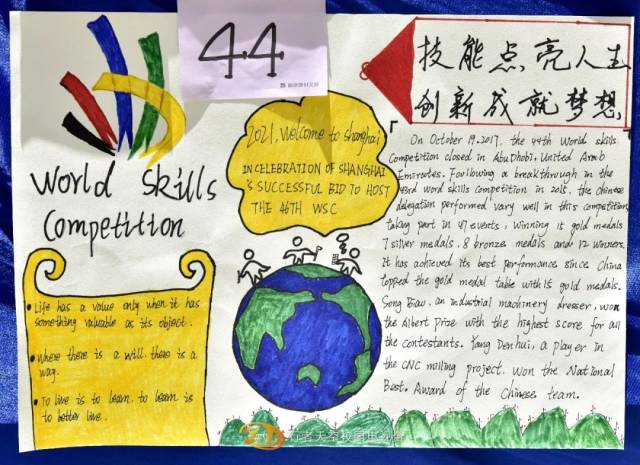 44
技能点亮人生
创新成就梦想
World Skills
Competition
2021, Welcome to Shanghai
IN CELEBRATION OF SHANGHAI
'S SUCCESSFUL BID TO HOST
THE 46TH WSC
Life has a value only when it has
something valuable as its object.
Where there is a will there is a
way.
To live is to learn. to learn is
to better live.
On October 19.2017, the 44th World skills
Competition closed in Abu Dhabi, United Arab
Emirates. Foollowing a breakthrough in the
43rd word skills competition in 2015, the Chinese
delegation performed vary well in this competition
taking part in 47 events, winning 15 gold medals
7 silver medals, 8 bronze medals and 12 winners.
It has achieved its best performance since China
topped the gold medal table with 15 gold medals.
Song Biao, an industrial machinery dresser, won
the Albert Prize with the highest score for all
the contestants. Yang Denhui, a player in
the CNC milling project. Won the National
Best. Award of the Chinese team.